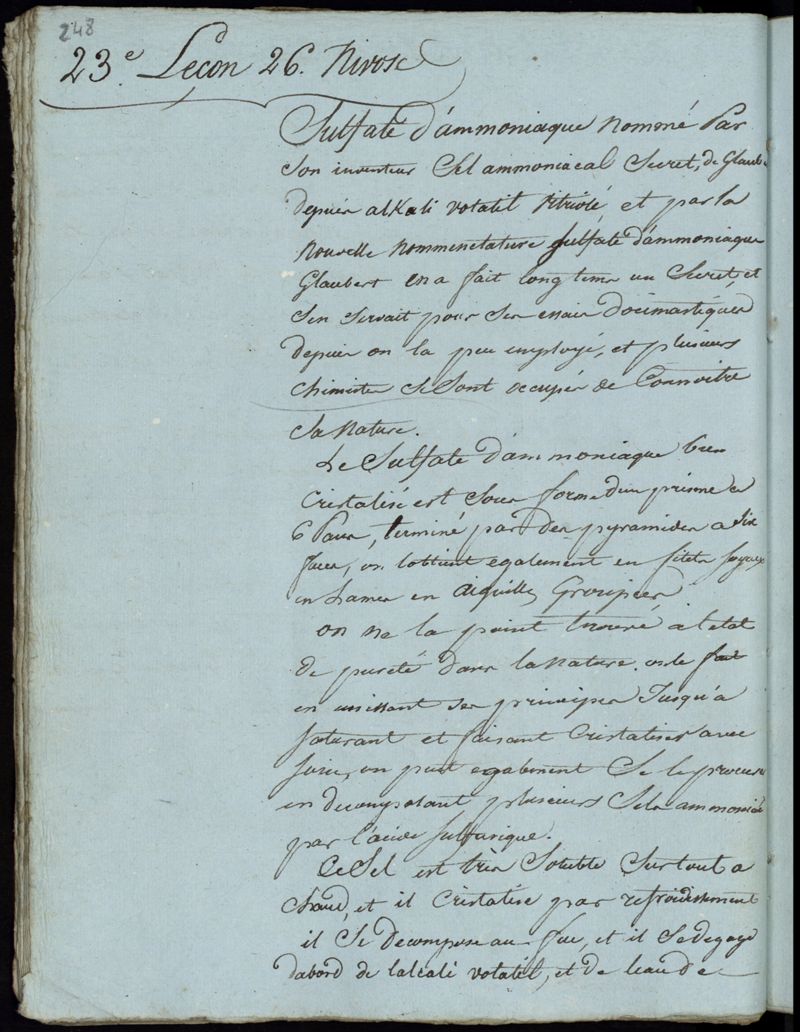 248
23.e Leçon 26. Nivose
Sulfate d'ammoniaque nommé Par
son inventeur Sel ammoniacal Secret, de Glaub
depuis alKali volatil vitriolé et par la
nouvelle nommenclature sulfate d'ammoniaque
Glaubert en a fait long tems un Secret, et
s'en servait pour ses essais docimastiques
depuis on l'a peu employé, et plusieurs
chimistes se sont occupés de Connoitre
sa nature.
Le Sulfate d'ammoniaque bien
cristalisé est sous forme d'un prisme a
6 Pans, terminé par des pyramides a six
faces, on l'obtient egalement en filets soyeux
en Lames en aiguilles Groupées
on ne l'a point trouvé a l'etat
de pureté dans la nature. on le fait
en unissant ses principes Jusqu'a
saturant et faisant Cristaliser avec
soin, on peut egalement se le procurer
en decomposant plusieurs Sels ammonia
par l'acide sulfurique.
Ce Sel est très Soluble Surtout a
chaud, et il Cristalise par refroidissement
il se decompose au feu, et il se degage
d'abord de l'alcali volatil, et de l'eau de